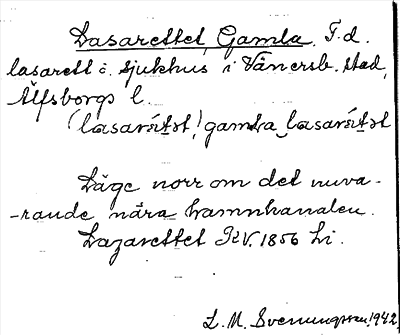 Lasarettet, Gamla. F. d.
lasarett o. sjukhus i Vänersb. stad,
Älfsborgs l.
Läge norr om det nuva-
-rande nära hamnkanalen.
Lazarettet KV. 1856 Li.
L. M. Svenungsson, 1942